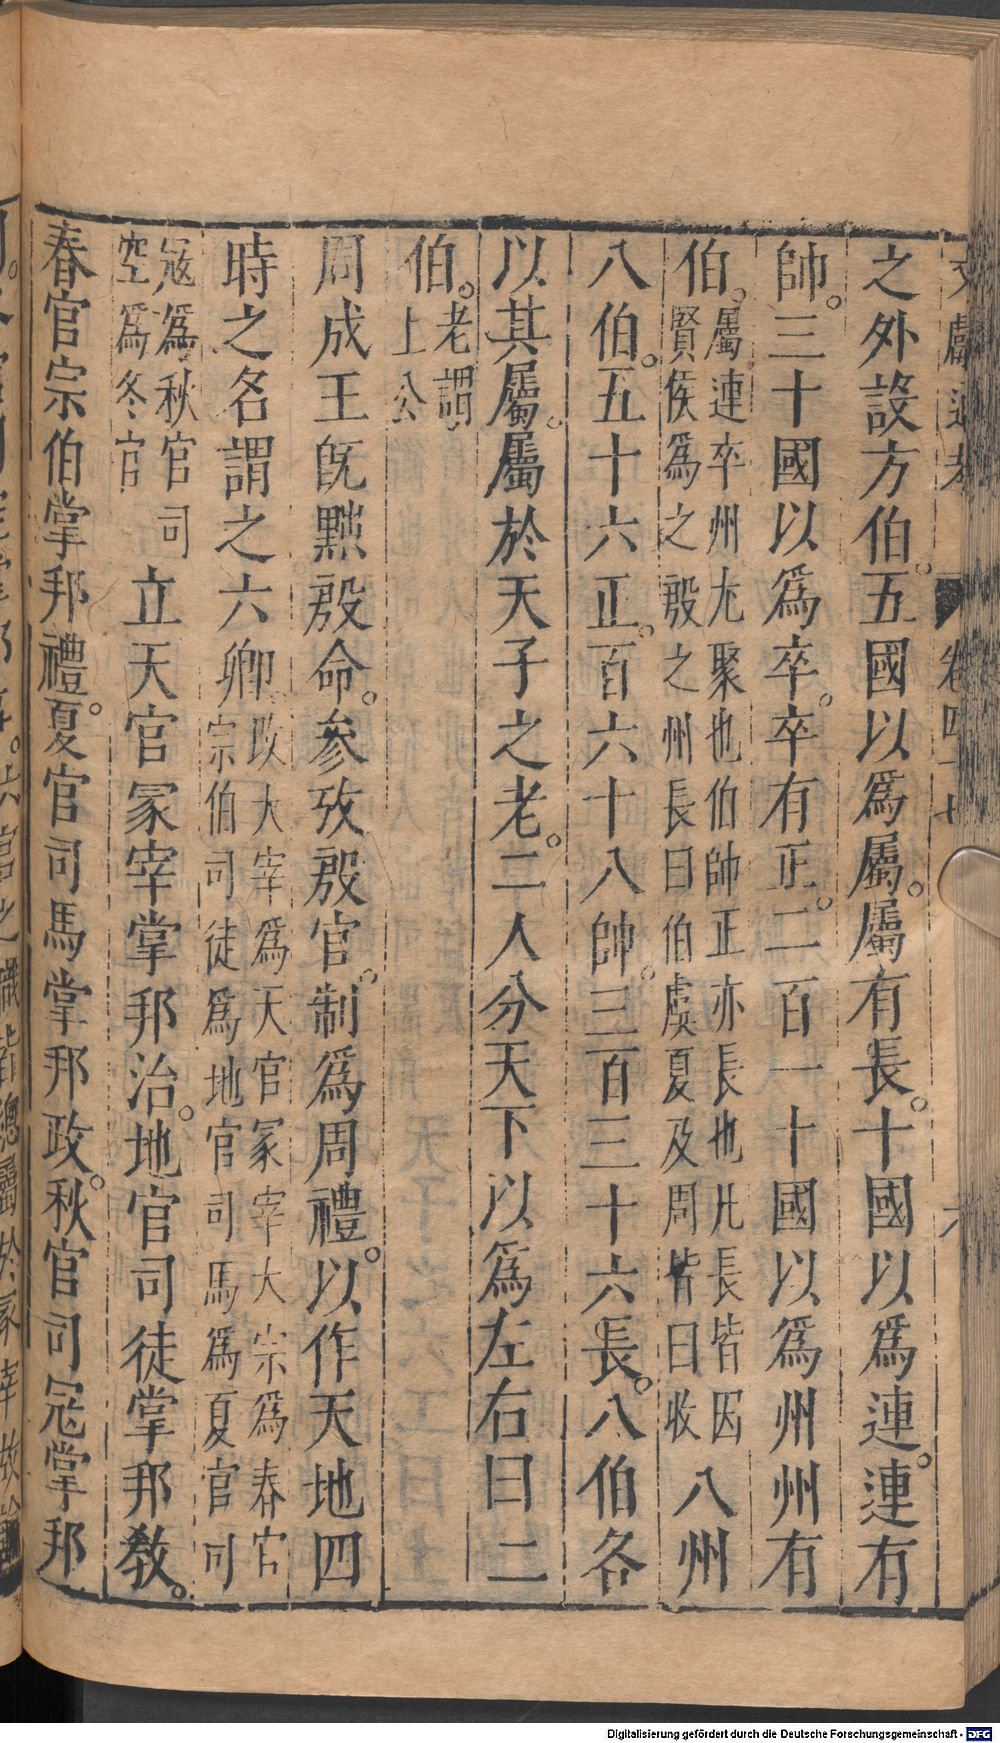 之外設方伯。五國以爲屬。屬有長。十國以爲連。連有
帥。三十國以爲卒。卒有正。二百一十國以爲州州有
伯。屬連卒州尤聚也伯帥正亦長也凡長皆因
賢侯爲之殷之州長曰伯虞夏及周皆曰收
八州
八伯。五十六正。百六十八帥。三百三十六長。八伯各
以其屬。屬於天子之老。二人分天下以爲左右曰二
伯。老謂
上公
周成王旣黜殷命。參攷殷官。制爲周禮。以作天地四
時之名謂之六卿改大宰爲天官冢宰大宗爲春官
宗伯司徒爲地官司馬爲夏官司
寇爲秋官司
空爲冬官
立天官冢宰掌邦治。地官司徒掌邦敎。
春官宗伯掌邦禮。夏官司馬掌邦政。秋官司寇掌邦
文獻通考
卷四十七
六
Digitalisierung gefördert durch die Deutsche Forschungsgemeinschaft - DFG